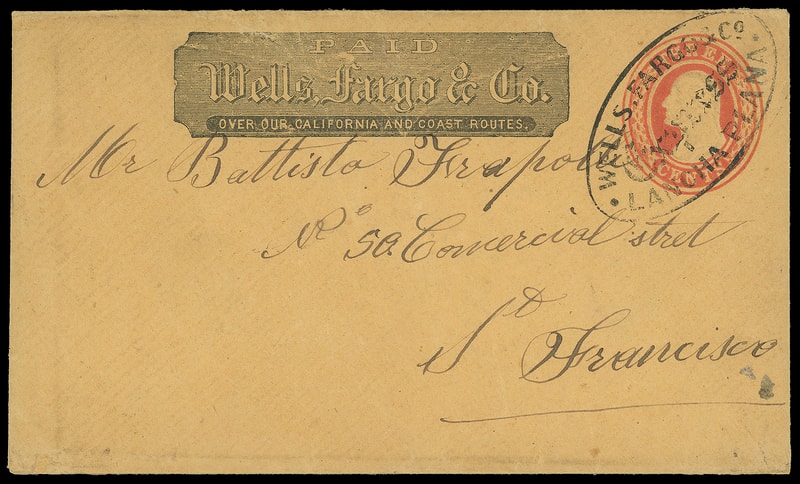 PAID
Wells, Fargo & Co.
OVER OUR CALIFORNIA AND COAST ROUTES.
WELLS, FARGO & Co.
LANCHA PLANA
THREE
CENTS
Mr Battista Frapoli
No 50. Comercial stret
St Francisco